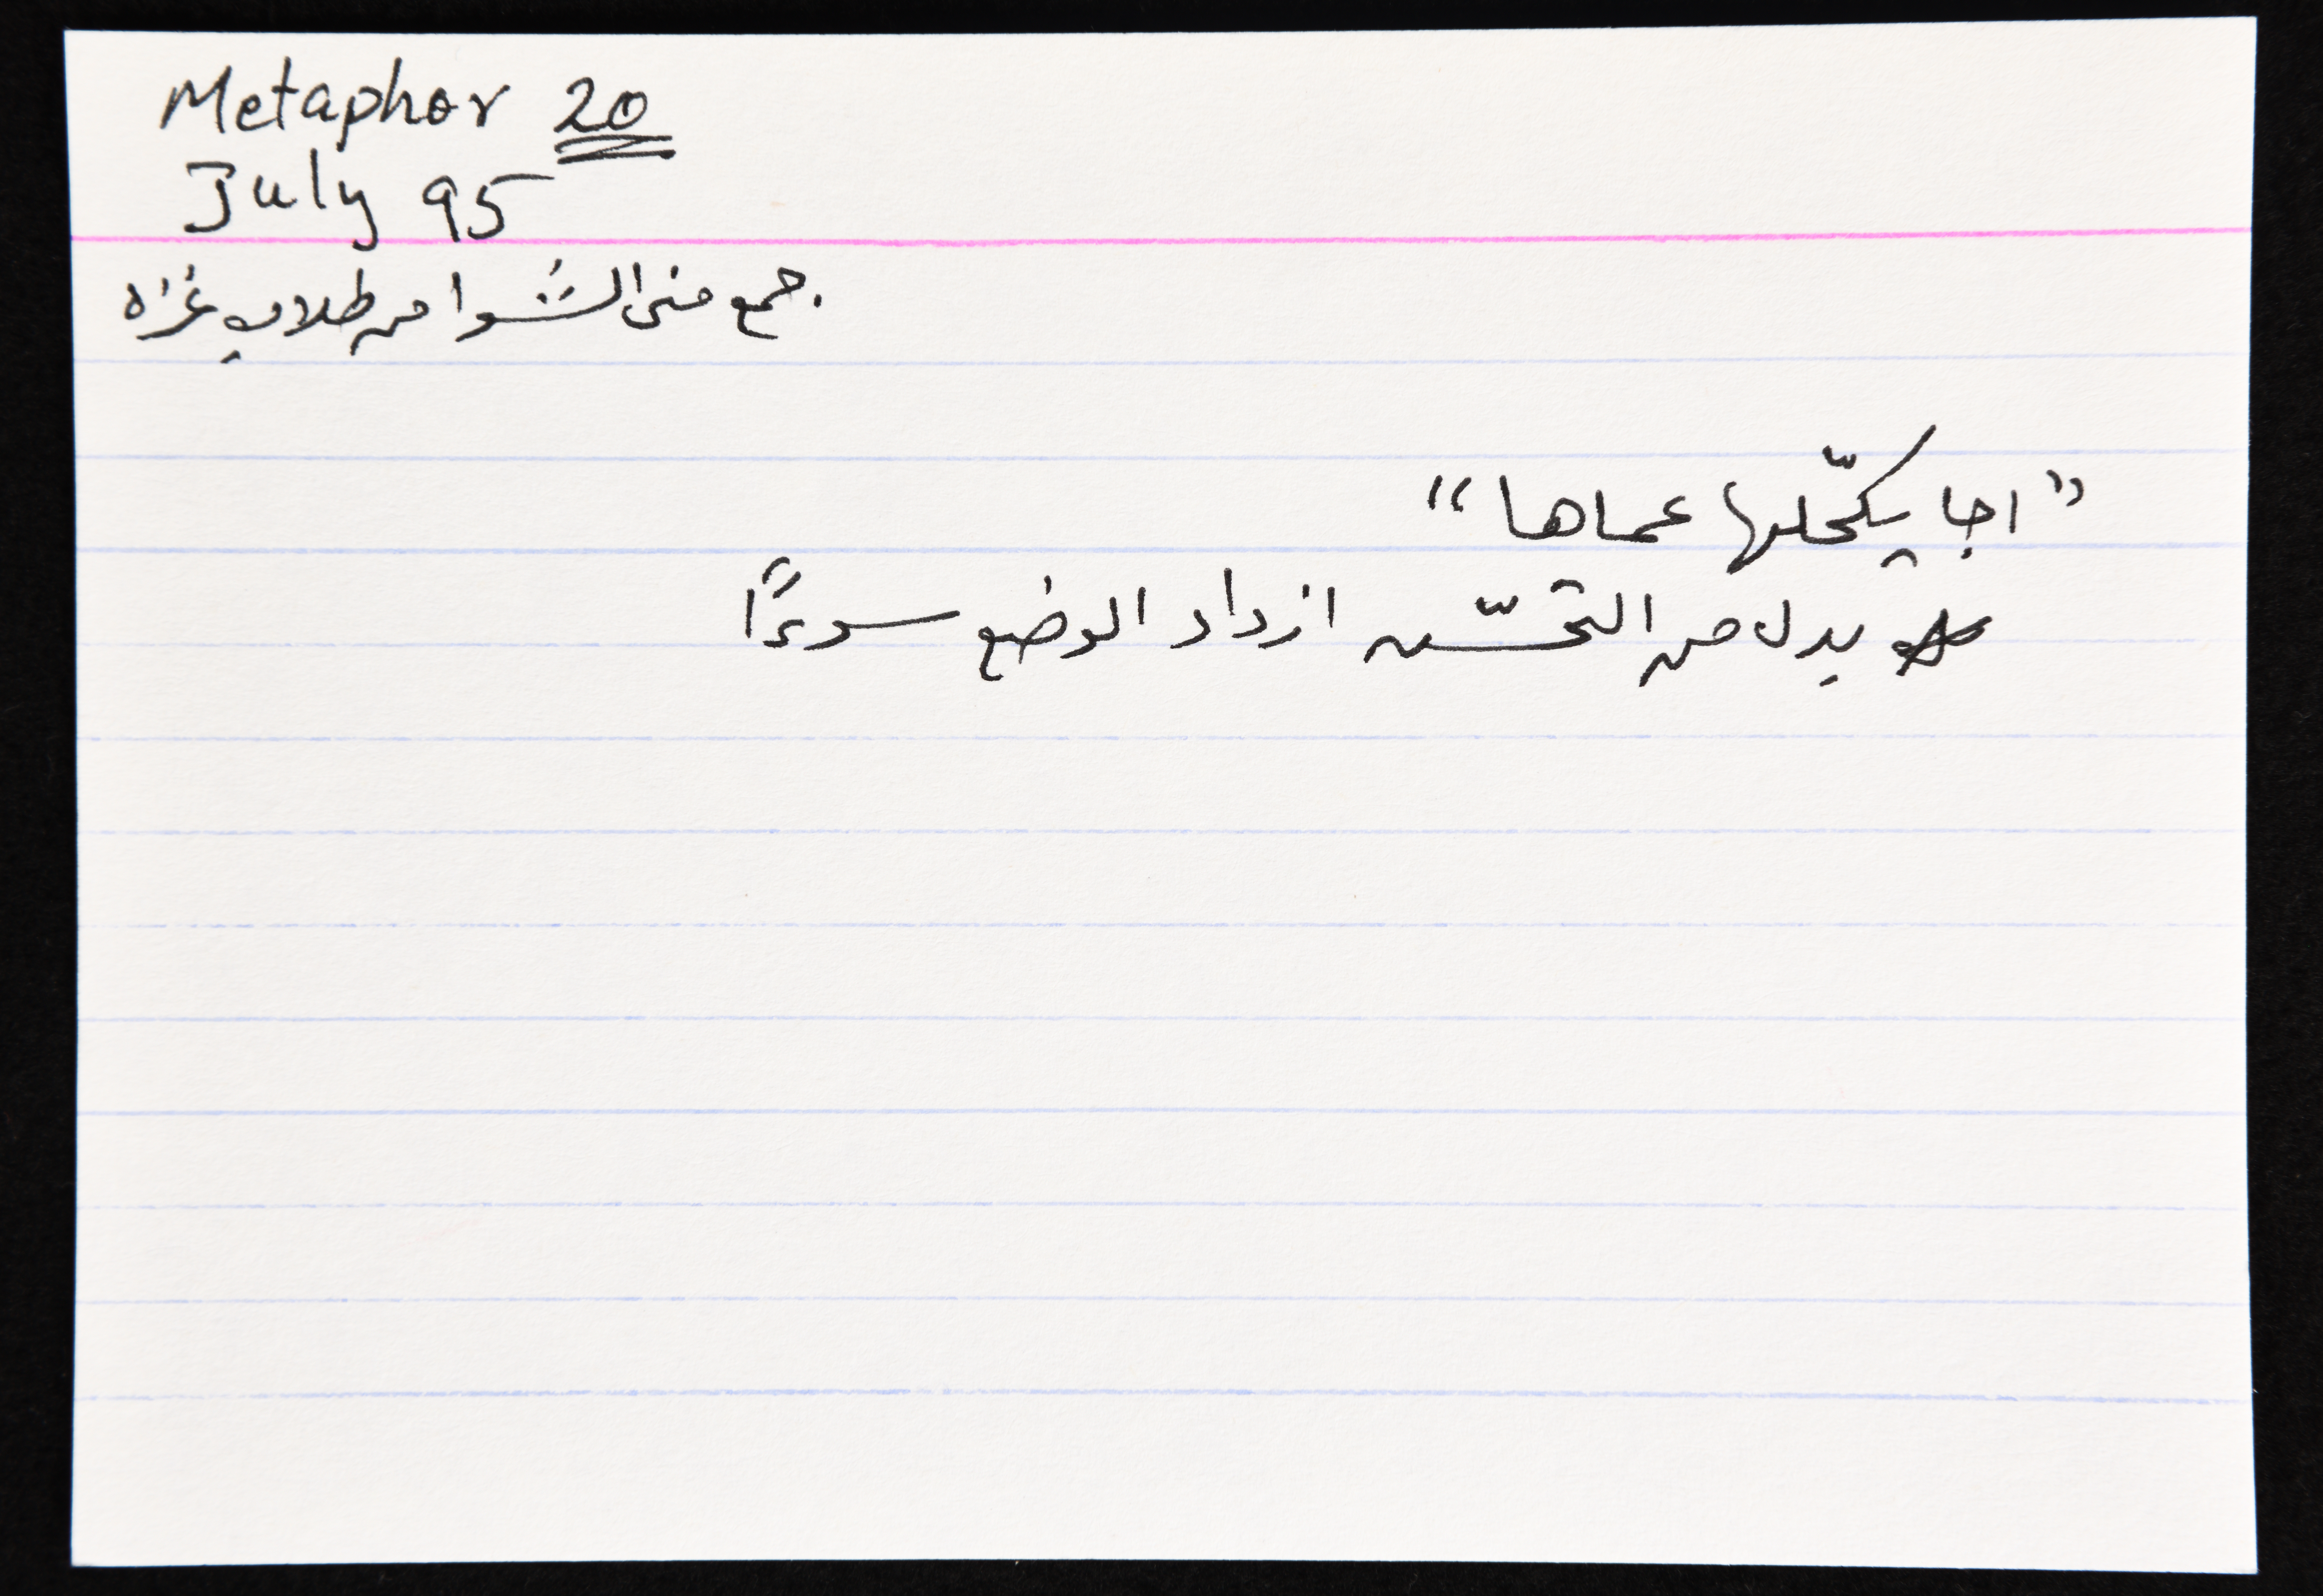 Metaphor 20
July 95
جمع منى الشوا من طلاب غزه
"اجا يكحّلها عماها"
بدل من التحسّن ازداد الوضع سوءًا